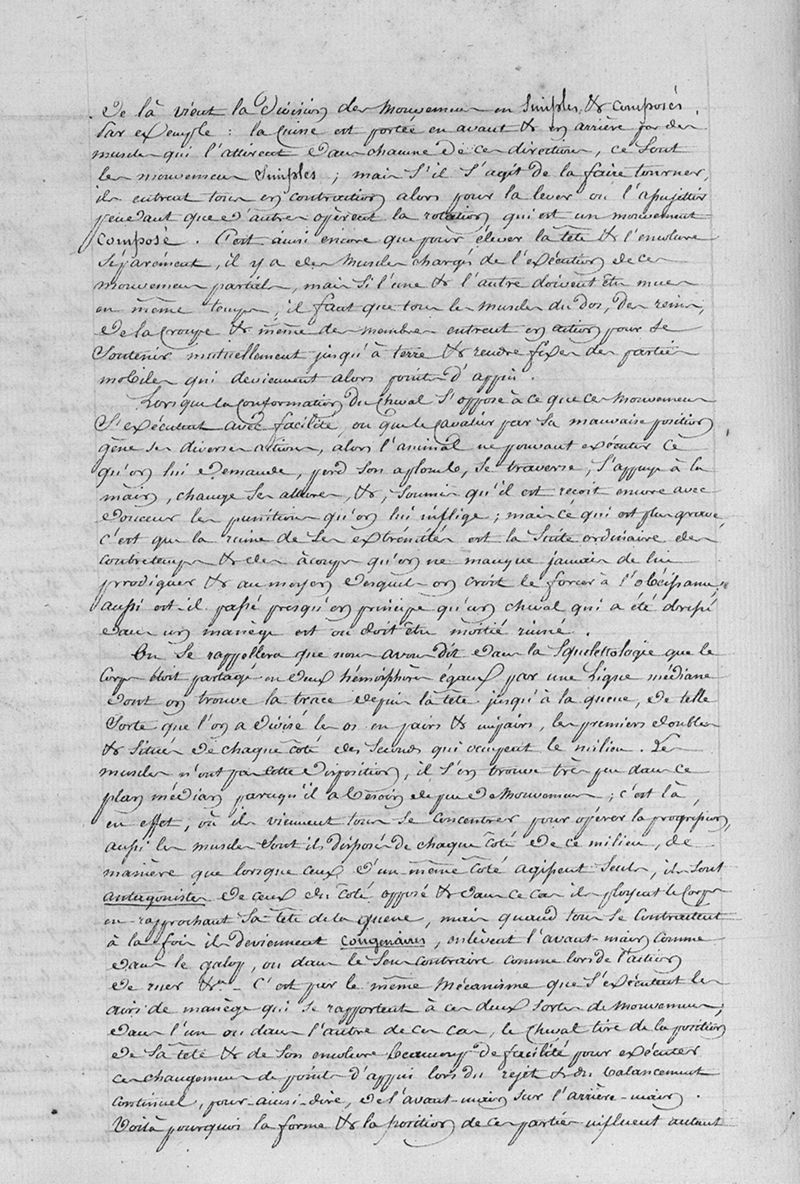 De là vient la Division des Mouvemens en Simples & composés.
Par exemple : la Cuisse est portée en avant & en arrière par des
muscles qui l'attirent dans chacune de ces directions, ce sont
les mouvemens Simples ; mais s'il s'agit de la faire tourner,
ils entrent tous en contraction alors pour la lever ou l'assujettir
pendant que d'autres opèrent la rotation qui est un mouvement
composé. C'est ainsi encore que pour élever la tête & l'encolure
séparément, il y a des Muscles chargés de l'exécution de ces
mouvemens partiels, mais si l'une & l'autre doivent être mues
en même temps, il faut que tous les muscles du dos, des reins,
de la Croupe & même des membres entrent en action pour se
Soutenir mutuellement jusqu'à terre & rendre fixes des parties
mobiles qui deviennent alors points d'appui.
Lorsque la Conformation du Cheval s'oppose à ce que ces Mouvemens
s'exécutent avec facilité, ou que le Cavalier par sa mauvaise position
gêne ses diverses actions, alors l'animal ne pouvant exécuter ce
qu'on lui demande, perd son aplomb, se traverse, s'appuye à la
main, change ses allures, &, soumis qu'il est reçoit encore avec
douceur les punitions qu'on lui inflige ; mais ce qui est plus grave,
c'est que la ruine de ses extrémités est la Suite ordinaire des
contretemps & des àcoups qu'on ne manque jamais de lui
prodiguer & au moyen desquels on croit le forcer à l'obéissance,
aussi est-il passé presqu'en principe qu'un cheval qui a été dressé
dans un manège est ou doit être moitié ruiné.
On se rappellera que nous avons dit dans la Squelettologie que le
Corps étoit partagé en deux hémisphères égaux par une ligne médiane
dont on trouve la trace depuis la tête jusqu'à la queue, de telle
sorte que l'on a divisé les os en pairs & impairs, les premiers doubles
& situés de chaque côté des seconds qui occupent le milieu. Les
muscles n'ont pas cette disposition, il s'en trouve très peu dans ce
plan médian parcequ'il a besoin de peu de Mouvemens ; c'est là,
en effet, où ils viennent tous se concentrer pour opérer la progression,
aussi les muscles sont ils disposés de chaque côté de ce milieu, de
manière que lorsque ceux d'un même côté agissent seuls, ils sont
antagonistes de ceux du côté opposé & dans ce cas ils ployent le Corps
en rapprochant sa tête de la queue, mais quand tous se contractent
à la fois ils deviennent congénaires, enlèvent l'avant-main comme
dans le galop, ou dans le sens contraire comme lors de l'action
de ruer &a. C'est par le même mécanisme que s'exécutent les
airs de manège qui se rapportent à ces deux sortes de Mouvemens ;
dans l'un ou dans l'autre de ces cas, le Cheval tire de la position
de sa tête & de son encolure beaucoup de facilité pour exécuter
ces changemens de points d'appui lors du rejet & du balancement
continuel, pour-ainsi-dire, de l'avant-main sur l'arrière-main.
Voilà pourquoi la forme & la position de ces parties influent autant